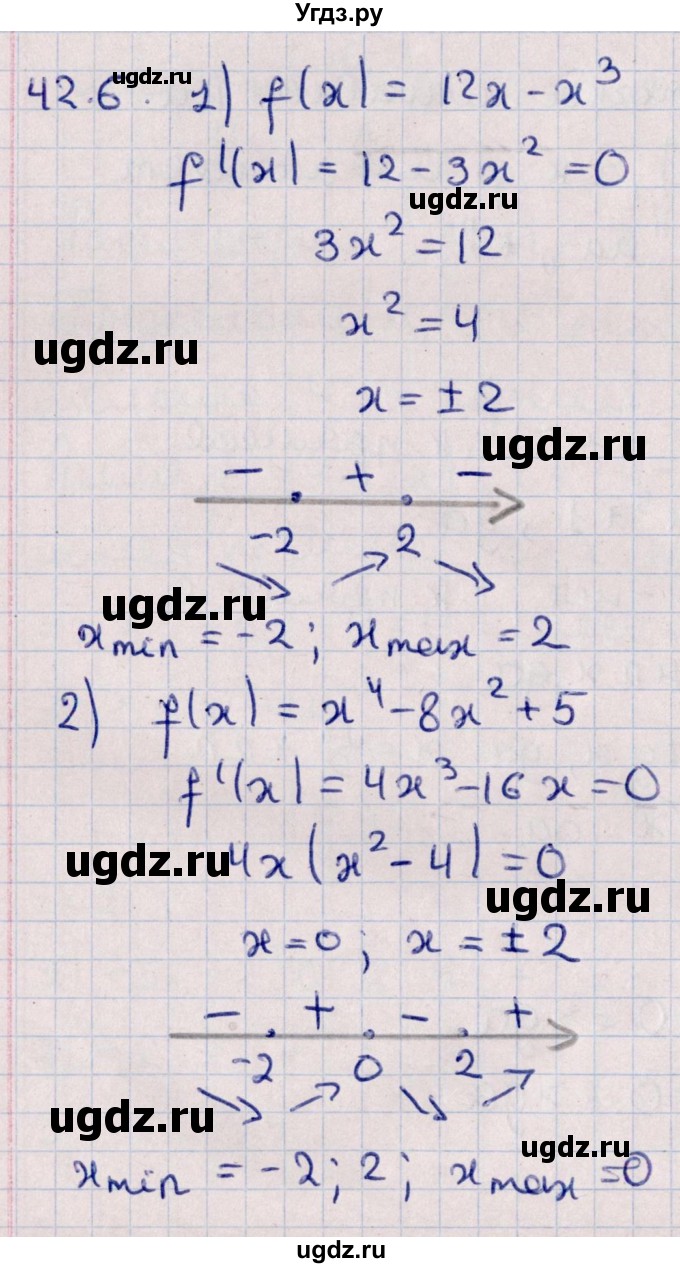 Угдз.ру
ugdz.ru
42.6. 1) f(x) = 12x - x³
f'(x) = 12 - 3x² = 0
ugdz.ru
3x² = 12
x² = 4
ugdz.ru
x = ±2
ugdz.ru
− + −
-2 2
ugdz.ru
xmin = -2; xmax = 2
2) f(x) = x⁴ - 8x² + 5
f'(x) = 4x³ - 16x = 0
ugdz.ru 4x(x² - 4) = 0
ugdz.ru
x = 0; x = ±2
− + − +
-2 0 2
ugdz.ru
ugdz.ru
xmin = -2; 2; xmax = 0
ugdz.ru